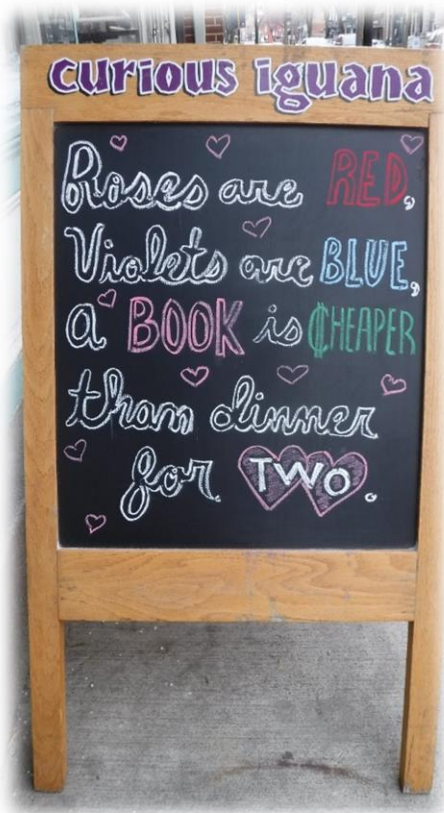 curious iguana
Roses are RED,
Violets are BLUE,
a BOOK is CHEAPER
than dinner
for TWO.